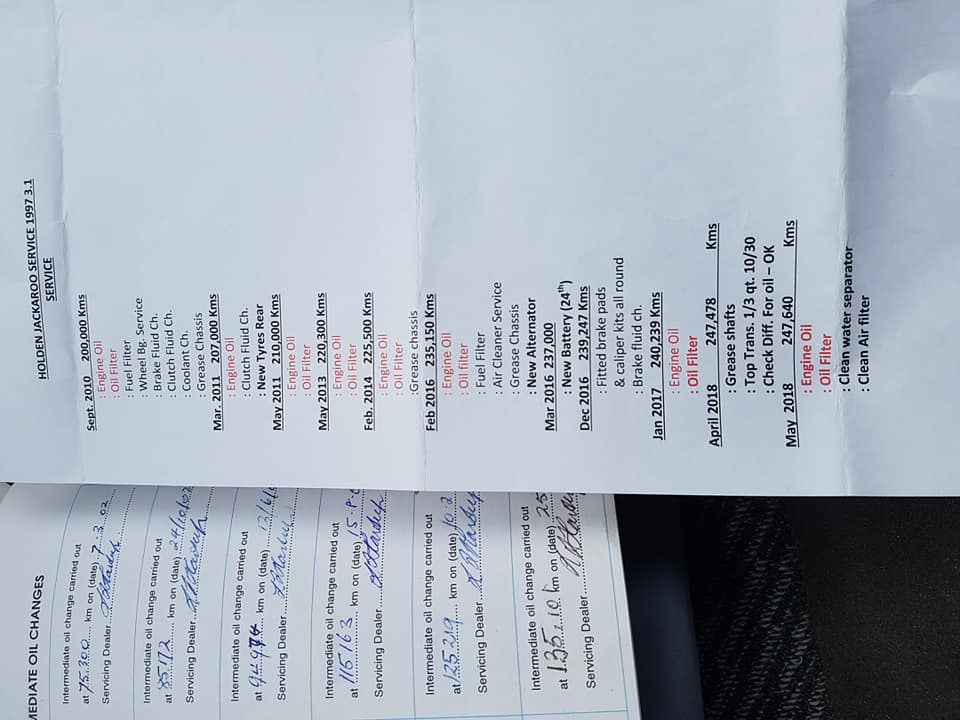 HOLDEN JACKAROO SERVICE 1997 3.1
SERVICE
Sept. 2010 200,000 Kms
: Engine Oil
: Oil Filter
: Fuel Filter
Wheel Bg. Service
: Brake Fluid Ch.
: Clutch Fluid Ch.
: Coolant Ch.
: Grease Chassis
Mar. 2011 207,000 Kms
: Engine Oil
: Clutch Fluid Ch.
: New Tyres Rear
May 2011 210,000 Kms
: Engine Oil
: Oil Filter
May 2013 220,300 Kms
: Engine Oil
: Oil Filter
Feb. 2014 225,500 Kms
: Engine Oil
: Oil Filter
:Grease chassis
Feb 2016 235,150 Kms
: Engine Oil
: Oil filter
: Fuel Filter
: Air Cleaner Service
: Grease Chassis
: New Alternator
Mar 2016 237,000
: New Battery (24th)
Dec 2016 239,247 Kms
: Fitted brake pads
& calliper kits all round
: Brake fluid ch.
Jan 2017 240,239 Kms
: Engine Oil
: Oil Filter
April 2018 247,478 Kms
: Grease shafts
: Top Trans. 1/3 qt. 10/30
: Check Diff. For oil – OK
May 2018 247,640 Kms
: Engine Oil
: Oil Filter
: Clean water separator
: Clean Air filter
MEDIATE OIL CHANGES
Intermediate oil change carried out
at 75,300 km on (date) 7.3.02
Servicing Dealer
Intermediate oil change carried out
at 85172 km on (date) 24/10/02
Servicing Dealer
Intermediate oil change carried out
at km on (date)
Servicing Dealer
Intermediate oil change carried out
at 115163 km on (date) 15.
Servicing Dealer
Intermediate oil change carried out
at 125219 km on (date) 10.2
Servicing Dealer
Intermediate oil change carried out
at km on (date) 25
Servicing Dealer